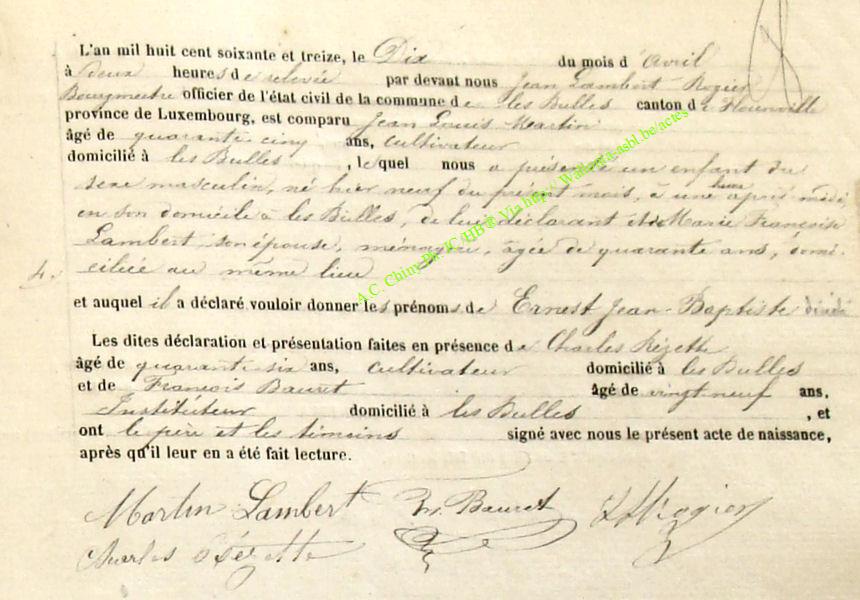 L'an mil huit cent soixante et treize, le Dix du mois d'Avril
à deux heures de relevée par devant nous Jean Lambert Rozier
Bourgmestre officier de l'état civil de la commune de les Bulles canton de Florenville
province de Luxembourg, est comparu Jean Louis Martin
âgé de quarante cinq ans, cultivateur
domicilié à les Bulles, lequel nous a présenté un enfant du
sexe masculin, né hier neuf du présent mois, à une heure après-midi,
en son domicile à les Bulles, de lui déclarant et de Marie Françoise
Lambert, son épouse, ménagère, âgée de quarante ans, domi-
4. ciliée au même lieu
et auquel il a déclaré vouloir donner les prénoms de Ernest Jean-Baptiste
Les dites déclaration et présentation faites en présence de Charles Rézette
âgé de quarante six ans, cultivateur domicilié à les Bulles
et de François Bauret âgé de vingt neuf ans,
Instituteur domicilié à les Bulles, et
ont le père et les témoins signé avec nous le présent acte de naissance,
après qu'il leur en a été fait lecture.
Martin Lambert Bauret
Charles Rézette
A.C. Chiny Ph. JC /HB @ Via http:\\ Wallonia-asbl.be/actes